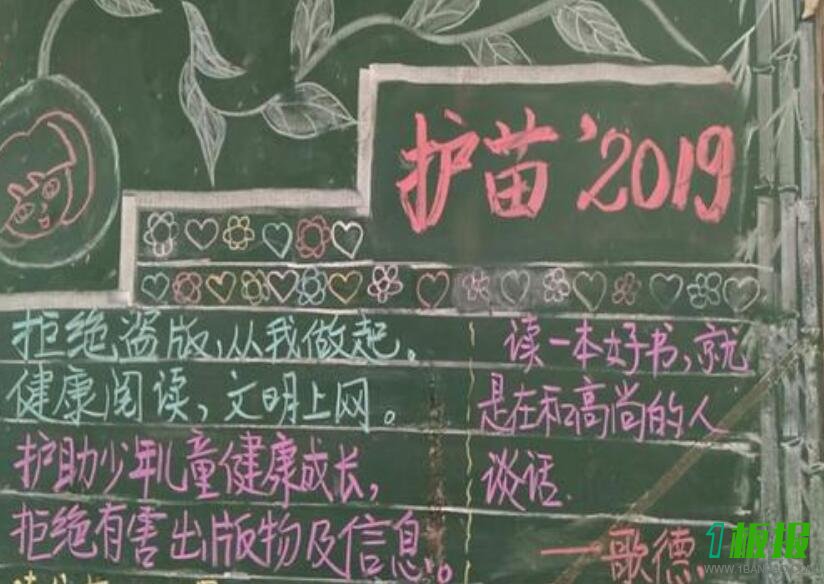 护苗’2019
拒绝盗版，从我做起。
健康阅读，文明上网。
护助少年儿童健康成长，
拒绝有害出版物及信息。
读一本好书，就
是在和高尚的人
谈话.
——歌德.
1板报
WWW.1BANBAO.COM